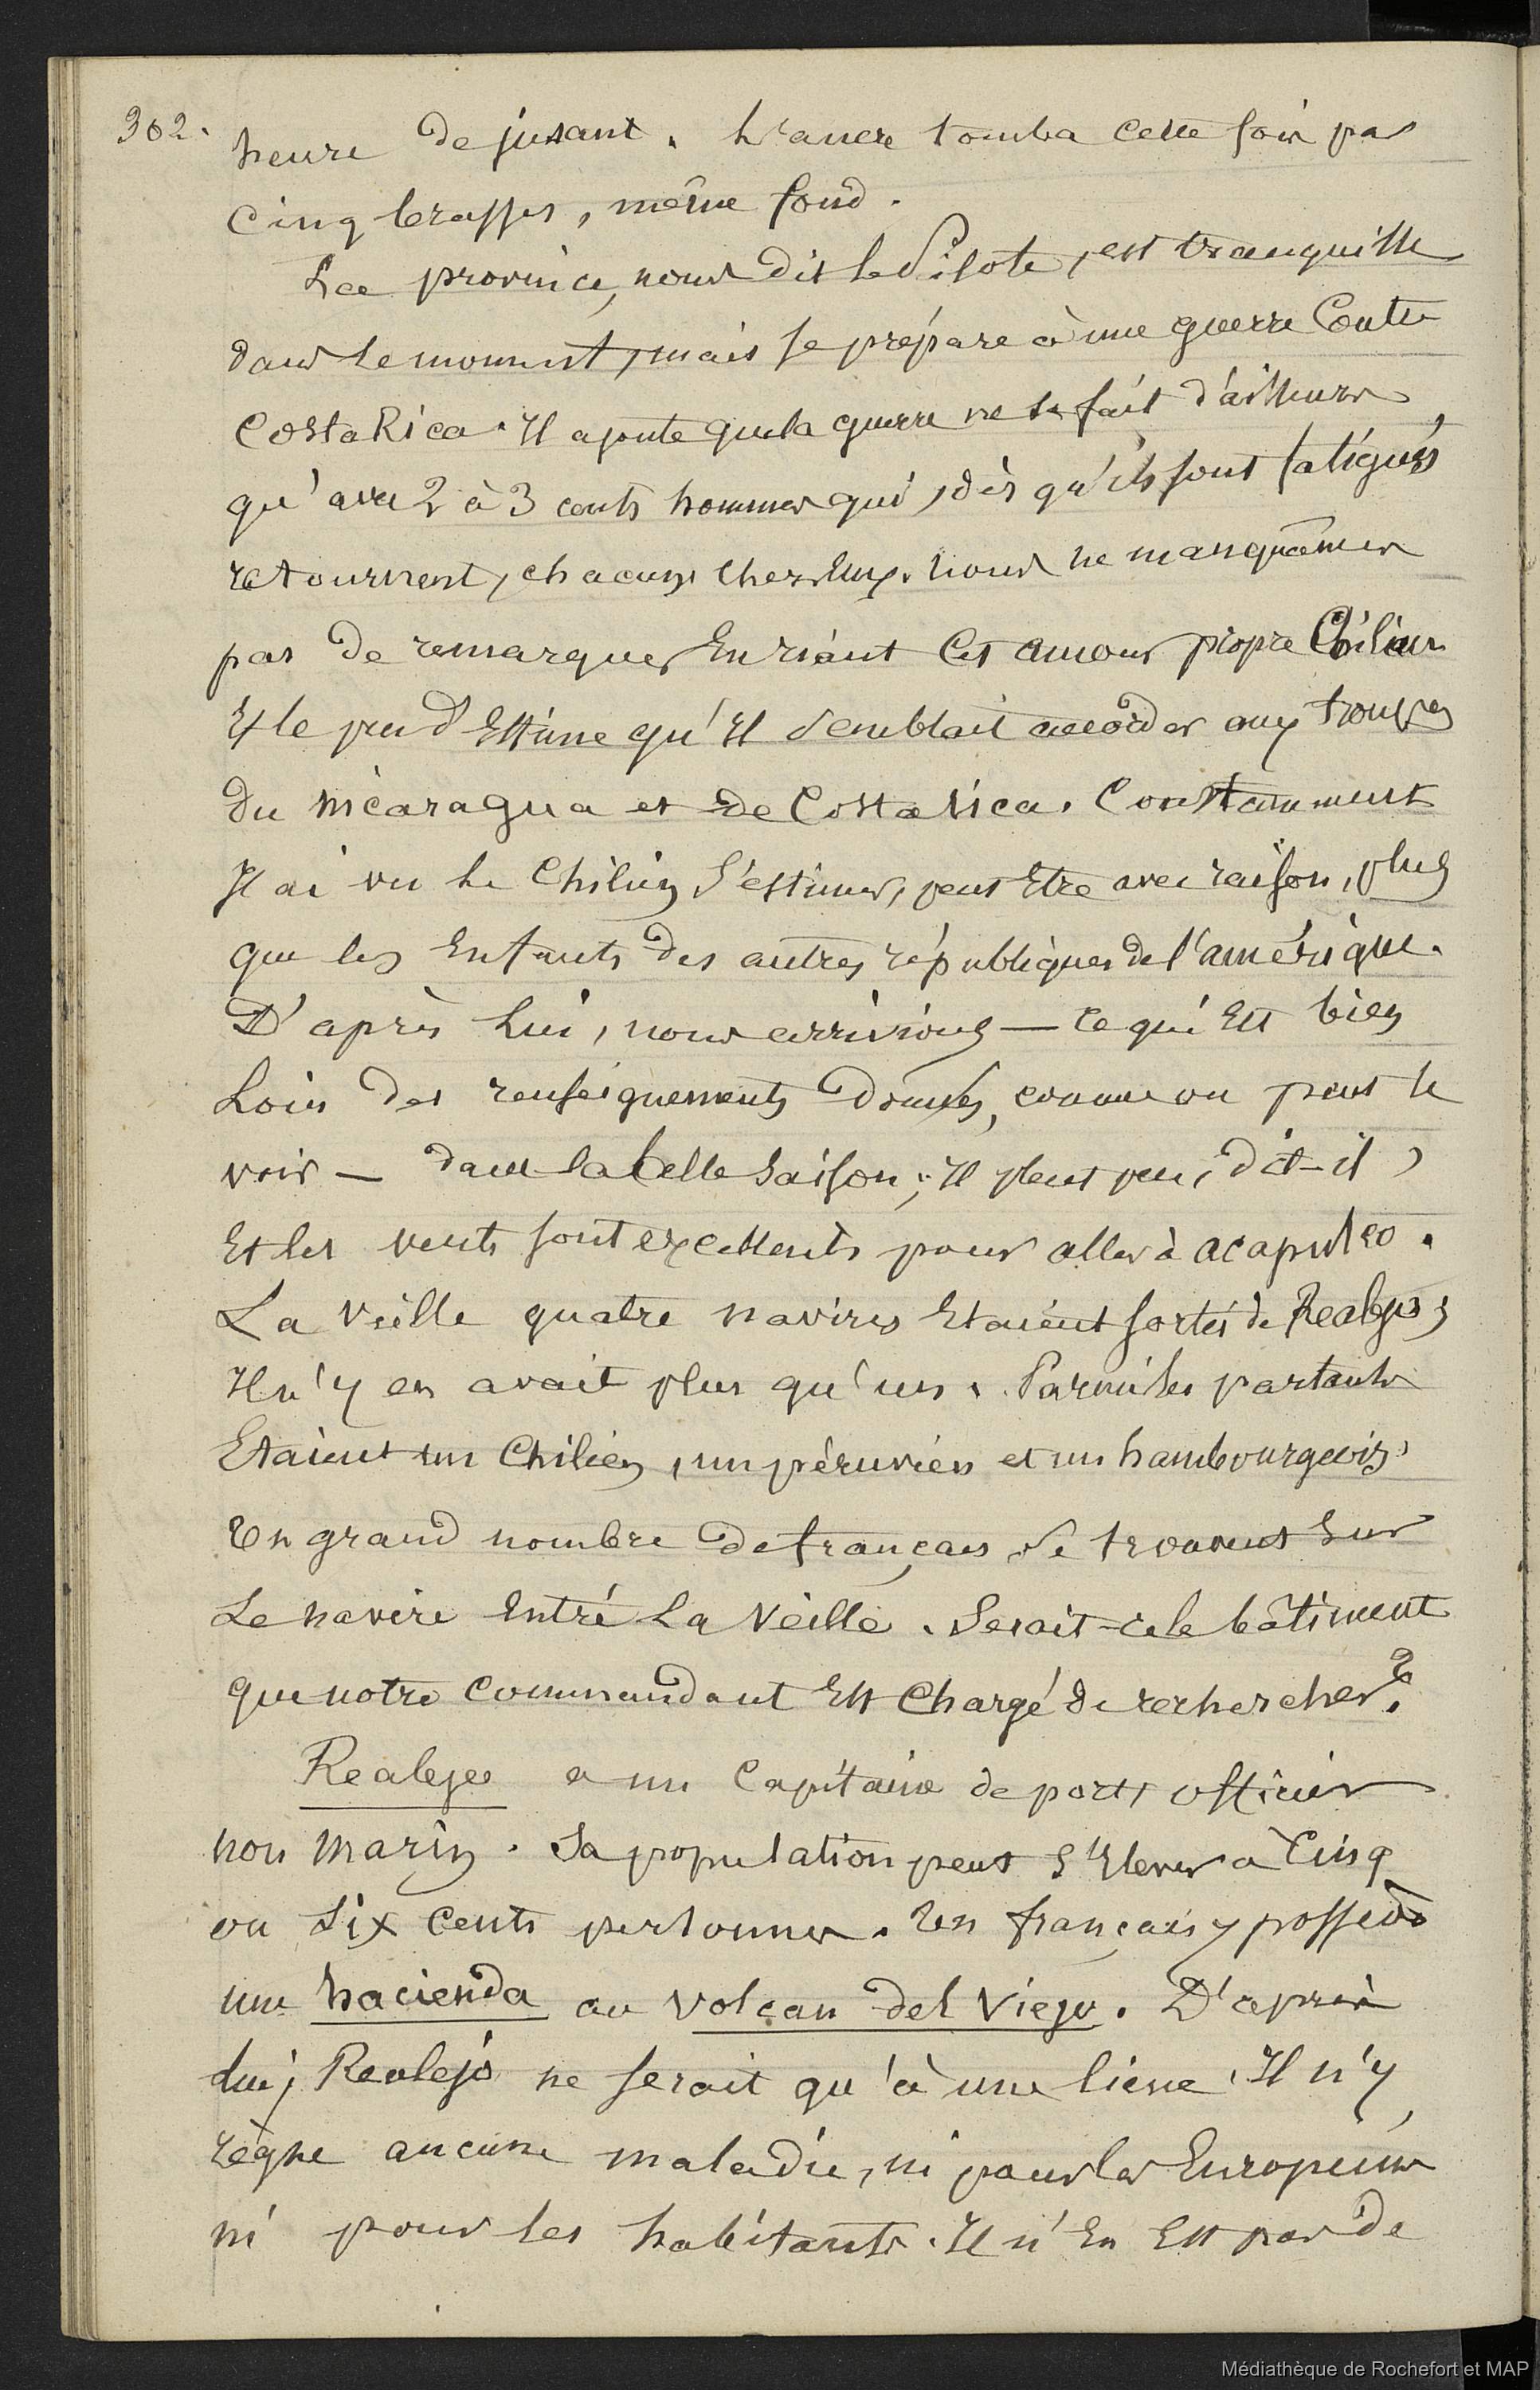 302.
heure de jusant. L'ancre tomba cette fois par
cinq brasses, même fond.
La province, nous dit le Pilote, est tranquille
dans le moment, mais se prépare à une guerre contre
Costa Rica. Il ajoute que la guerre ne se fait d'ailleurs
qu'avec 2 à 3 cents hommes qui, dès qu'ils sont fatigués,
retournent, chacun chez eux. Nous ne manquâmes
pas de remarquer en riant cet amour propre Chilien
et le peu d'Estime qu'il semblait accorder aux troupes
du Nicaragua et de Costa Rica. Constamment
J'ai vu le Chilien s'estimer, peut être avec raison, plus
que les Enfants des autres républiques de l'amérique.
D'après lui, nous arrivions — ce qui Est bien
loin des renseignements donnés, comme on peut le
voir — dans la belle saison; Il pleut peu, dit-il,
Et les vents sont excellents pour aller à acapulco.
La veille quatre navires Etaient sortis de Realejo;
Il n'y en avait plus qu'un. Parmi les partants
Etaient un Chilien, un péruvien et un hambourgeois.
Un grand nombre de français se trouvent sur
Le navire Entré La veille. Serait-ce le bâtiment
que notre commandant Est chargé de rechercher?
Realejo a un Capitaine de port, officier
non marin. Sa population peut s'Elever à Cinq
ou six cents personnes. Un français y possède
une hacienda au volcan del Viejo. D'après
lui, Realejo ne serait qu'à une lieue. Il n'y
règne aucune maladie, ni pour les Européens,
ni pour les habitants. Il n'En Est pas de
Médiathèque de Rochefort et MAP